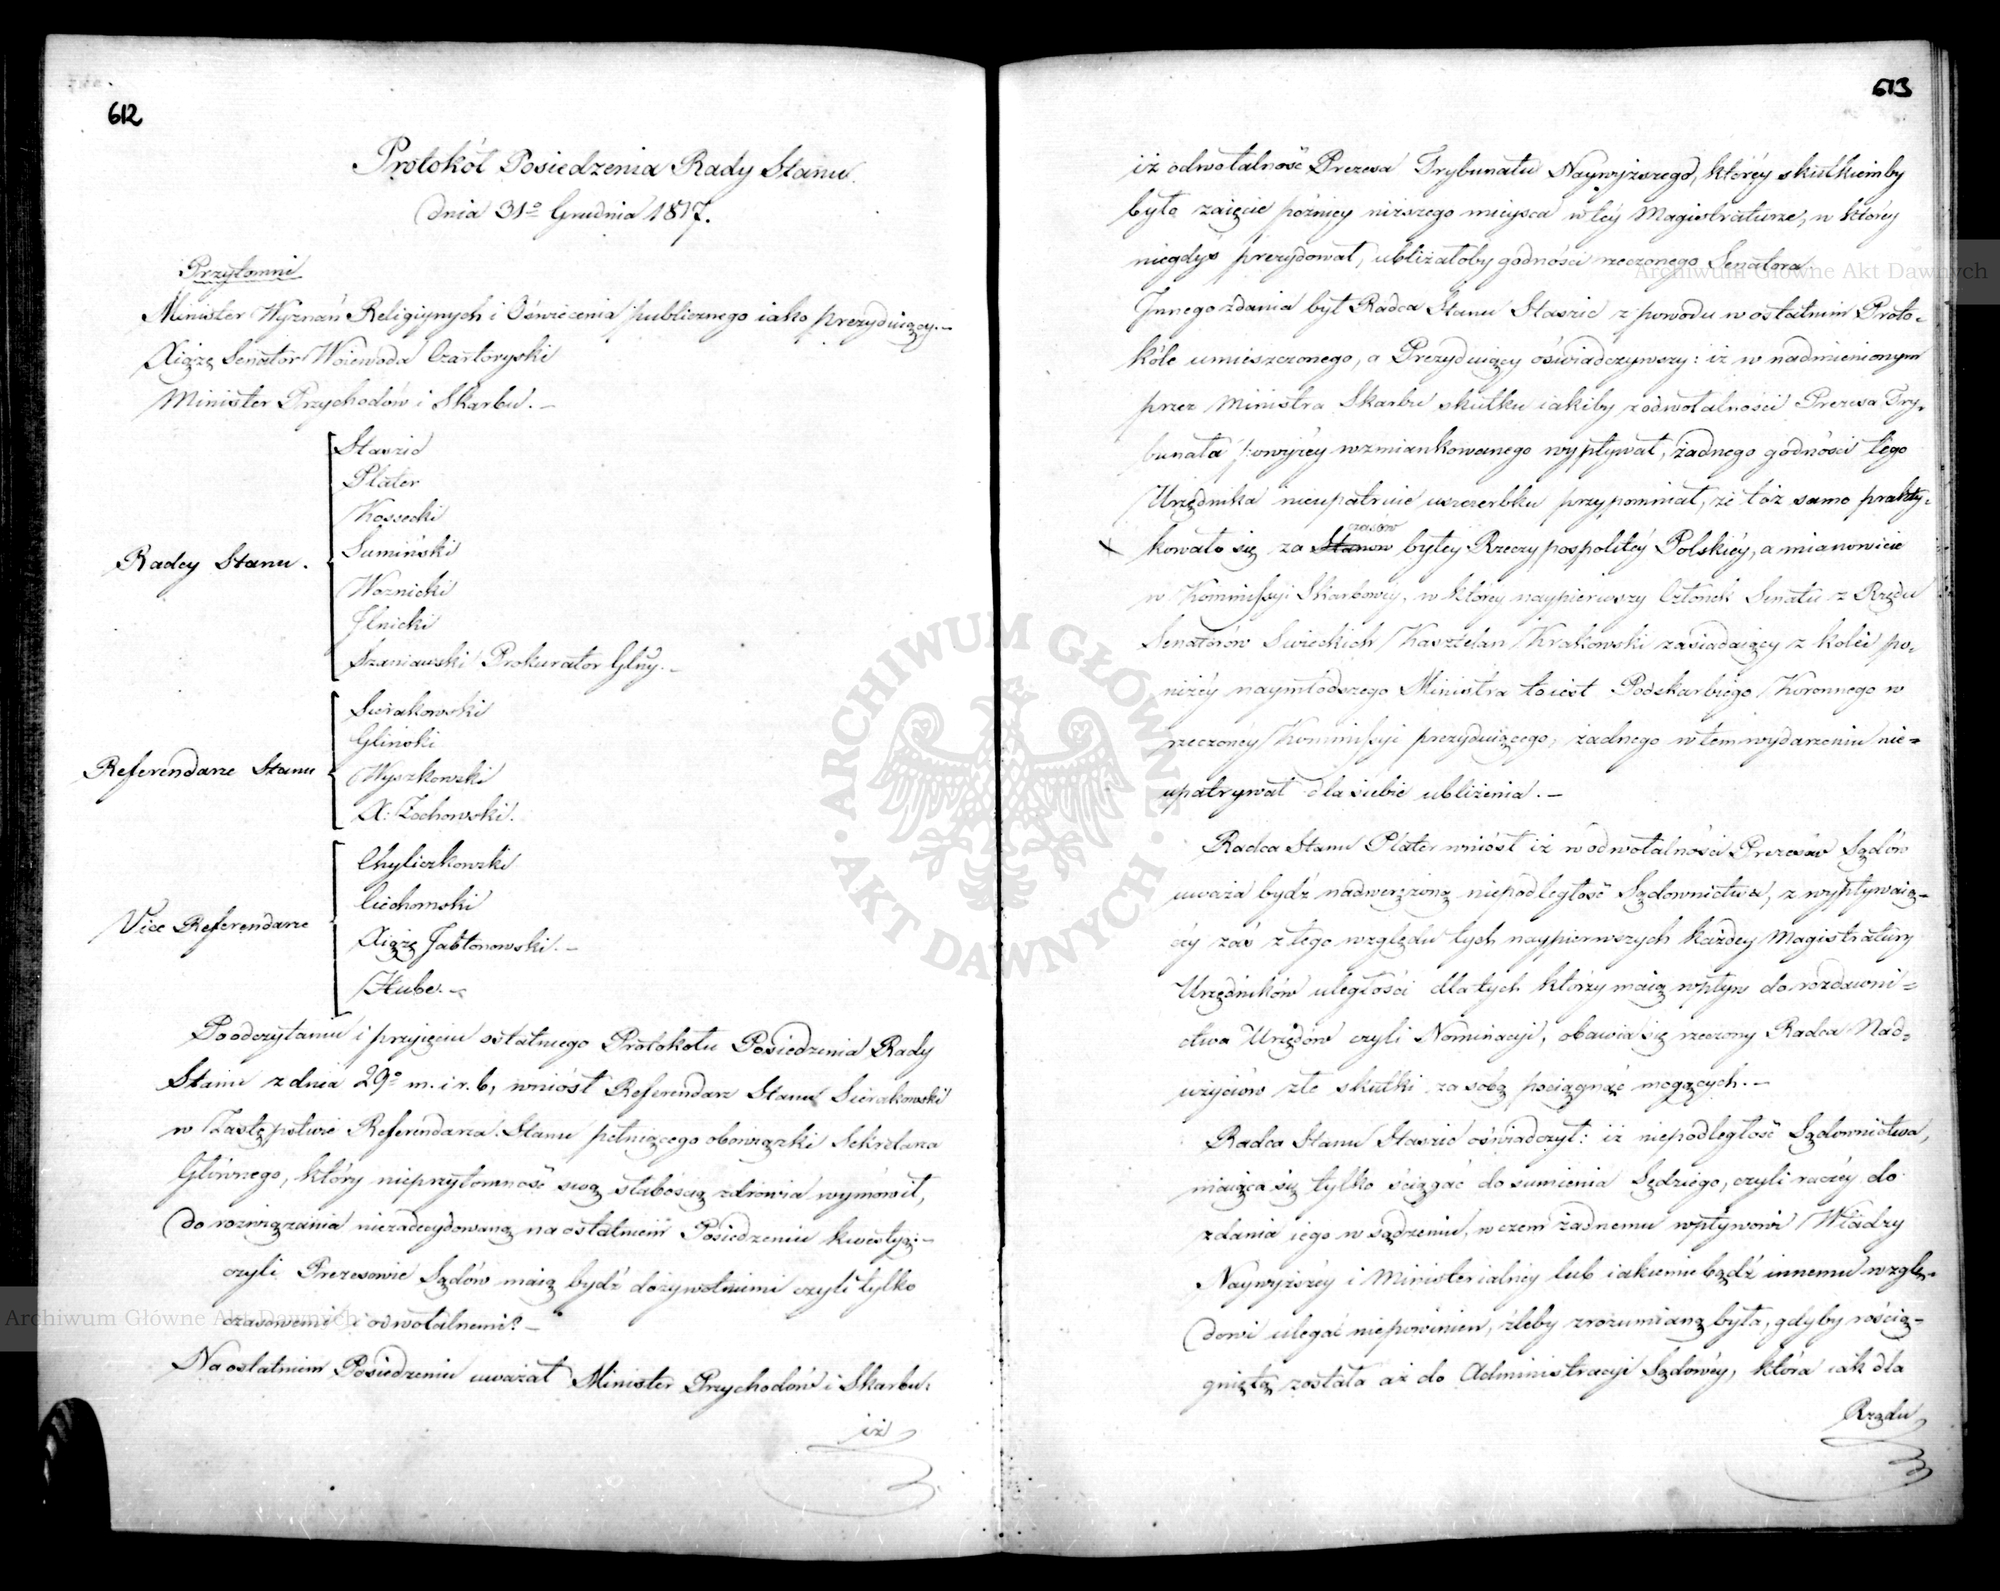 612
Protokół Posiedzenia Rady Stanu.
dnia 31º Grudnia 1817.
Przytomni
Minister Wyznań Religiynych i Oświecenia publicznego iako prezyduiący.—
Xiąże Senator Woiewoda Czartoryski
Minister Przychodów i Skarbu.—
Radcy Stanu.
Staszic
Plater
Kossecki
Sumiński
Woznicki
Jlnicki
Szaniawski Prokurator Glny.—
Referendarze Stanu
Sierakowski
Gliński
Wyszkowski
X: Zochowski.
Vice Referendarze
Chyliczkowski
Ciechomski
Xiąże Jabłonowski.—
Hube.—
Po odczytaniu i przyięciu ostatniego Protokołu Posiedzenia Rady
Stanu z dnia 29º m. i r. b, wniósł Referendarz Stanu Sierakowski
w Zastępstwie Referendarza Stanu pełniącego obowiązki Sekretarza
Głównego, który nieprzytomność swą słabością zdrowia wymówił,
do rozwiązania niezadecydowaną na ostatniem Posiedzeniu kwestyą:—
czyli Prezesowie Sądów maią bydź dożywotniemi czyli tylko
czasowemi i odwołalnemi?—
Na ostatniem Posiedzeniu uważał Minister Przychodów i Skarbu:
iż
613
iż odwołalność Prezesa Trybunału Naywyższego, któréy skutkiemby
było zaięcie późniéy niższego mieysca w téy Magistraturze, w któréy
niegdyś prezydował, ubliżałoby godności rzeczonego Senatora.
Jnnego zdania był Radca Stanu Staszic z powodu w ostatnim Proto-
kóle umieszczonego, a Prezyduiący oświadczywszy: iż w nadmienionym
przez Ministra Skarbu skutku iakiby z odwołalności Prezesa Try-
bunału powyżéy wzmiankowanego wypływał, żadnego godności tégo
Urzędnika nieupatruie uszczerbku przypominał, że toż samo prakty-
kowało się za Stanow czasow byłey Rzeczypospolitéy Polskiéy, a mianowicie
w Kommissyi Skarbowéy, w któréy naypierwszy Członek Senatu z Rzędu
Senatorów Swieckich Kasztelan Krakowski zasiadaiący z kolei po-
niżéy naymłodszego Ministra to iest Podskarbiego Koronnego w
rzeczonéy Kommissyi prezyduiącego, żadnego w tem wydarzeniu nie-
upatrywał dla siebie ubliżenia.—
Radca Stanu Plater wniósł iż w odwołalności Prezesów Sądów
uważa bydź nadwerężoną niepodległość Sądownictwa, z wypływaią-
céy zaś z tego względu tych naypierwszych każdey Magistratury
Urzędników uległości dla tych którzy maią wpływ do rozdawni-
ctwa Urzędów czyli Nominacyi, obawia się rzeczony Radca Nad-
użyciów złe skutki za sobą pociągnąć mogących.—
Radca Stanu Staszic oświadczył: iż niepodległość Sądownictwa,
maiąca się tylko ściągać do sumienia Sędziego, czyli raczéy do
zdania iego w sądzeniu, w czem żadnemu wpływowi Władzy
Naywyższéy i Ministerialnéy lub iakiemubądź innemu wzglę-
dowi ulegać niepowinien, źleby zrozumianą była, gdyby rością-
gniętą została aż do Administracyi Sądowéy, która iak dla
Rządu
Archiwum Główne Akt Dawnych
Archiwum Główne Akt Dawnych
ARCHIWUM GŁÓWNE AKT DAWNYCH